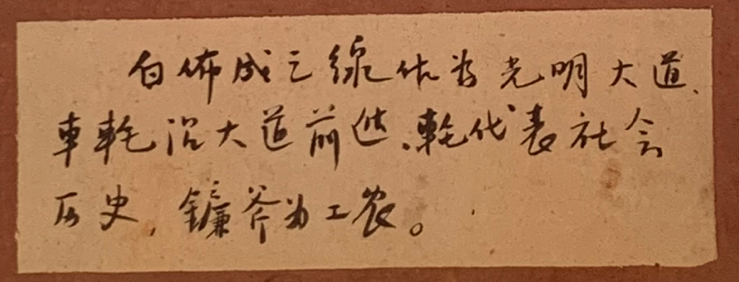 白佈成之線作为光明大道、
車輪沿大道前进、輪代表社会
历史，鐮斧为工农。